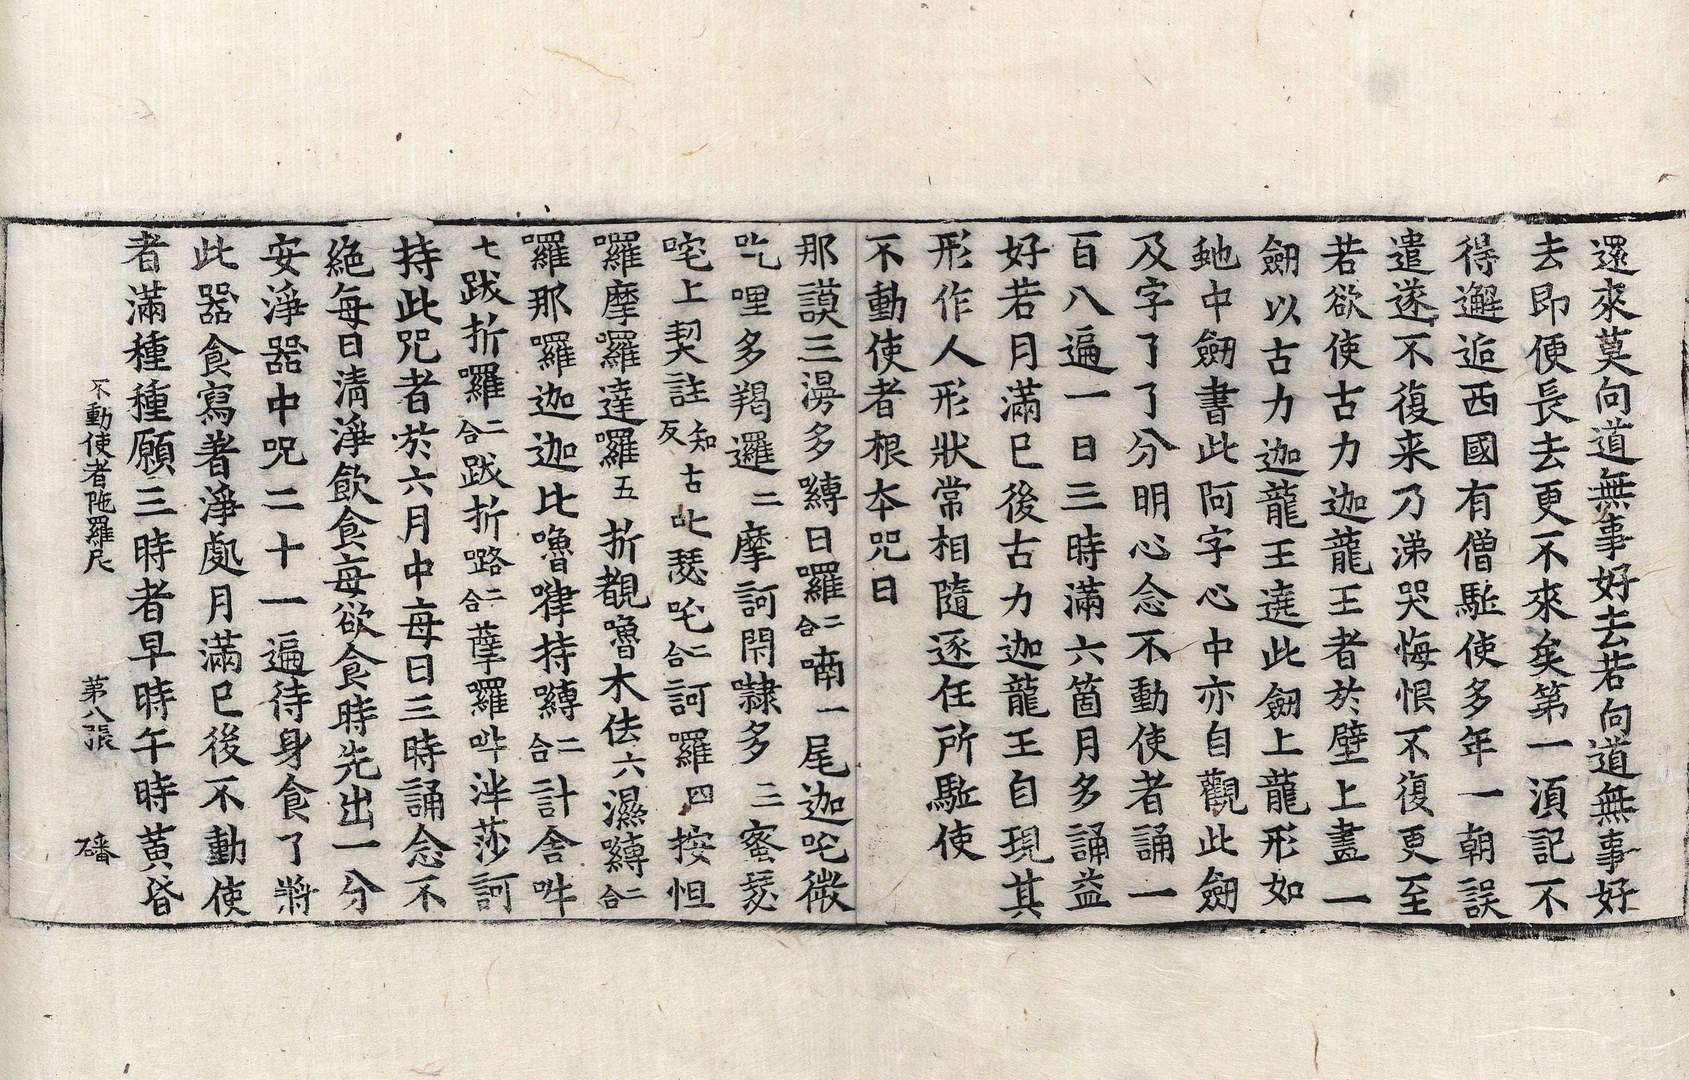 還來莫向道無事好去若向道無事好
去即便長去更不來矣第一湏記不
得邂逅西國有僧駈使多年一朝誤
遣遂不復来乃涕哭悔恨不復更至
若欲使古力迦龍王者於壁上畫一
劒以古力迦龍王遶此劒上龍形如
虵中劒書此阿字心中亦自觀此劒
及字了了分明心念不動使者誦一
百八遍一日三時滿六箇月多誦益
好若月滿已後古力迦龍王自現其
形作人形狀常相隨逐任所駈使
不動使者根本咒曰
那謨三湯多嚩日囉二合喃一尾迦吒微
吃哩多羯邏二摩訶閇㘑多三蜜瑟
咤上契註知古反吡瑟吒二合訶羅四按怛
囉摩囉達囉五折覩嚕木佉六濕嚩二合
囉那囉迦迦比嚕嘚持嚩二合計舍吽
七跋折囉二合跋折𡀔二合孽囉吽泮莎訶
持此咒者於六月中每日三時誦念不
絶每日清淨飲食每欲食時先出一分
安淨器中咒二十一遍待身食了將
此器食寫著淨處月滿已後不動使
者滿種種願三時者早時午時黃昏
不動使者陁羅尼 第八張 磻